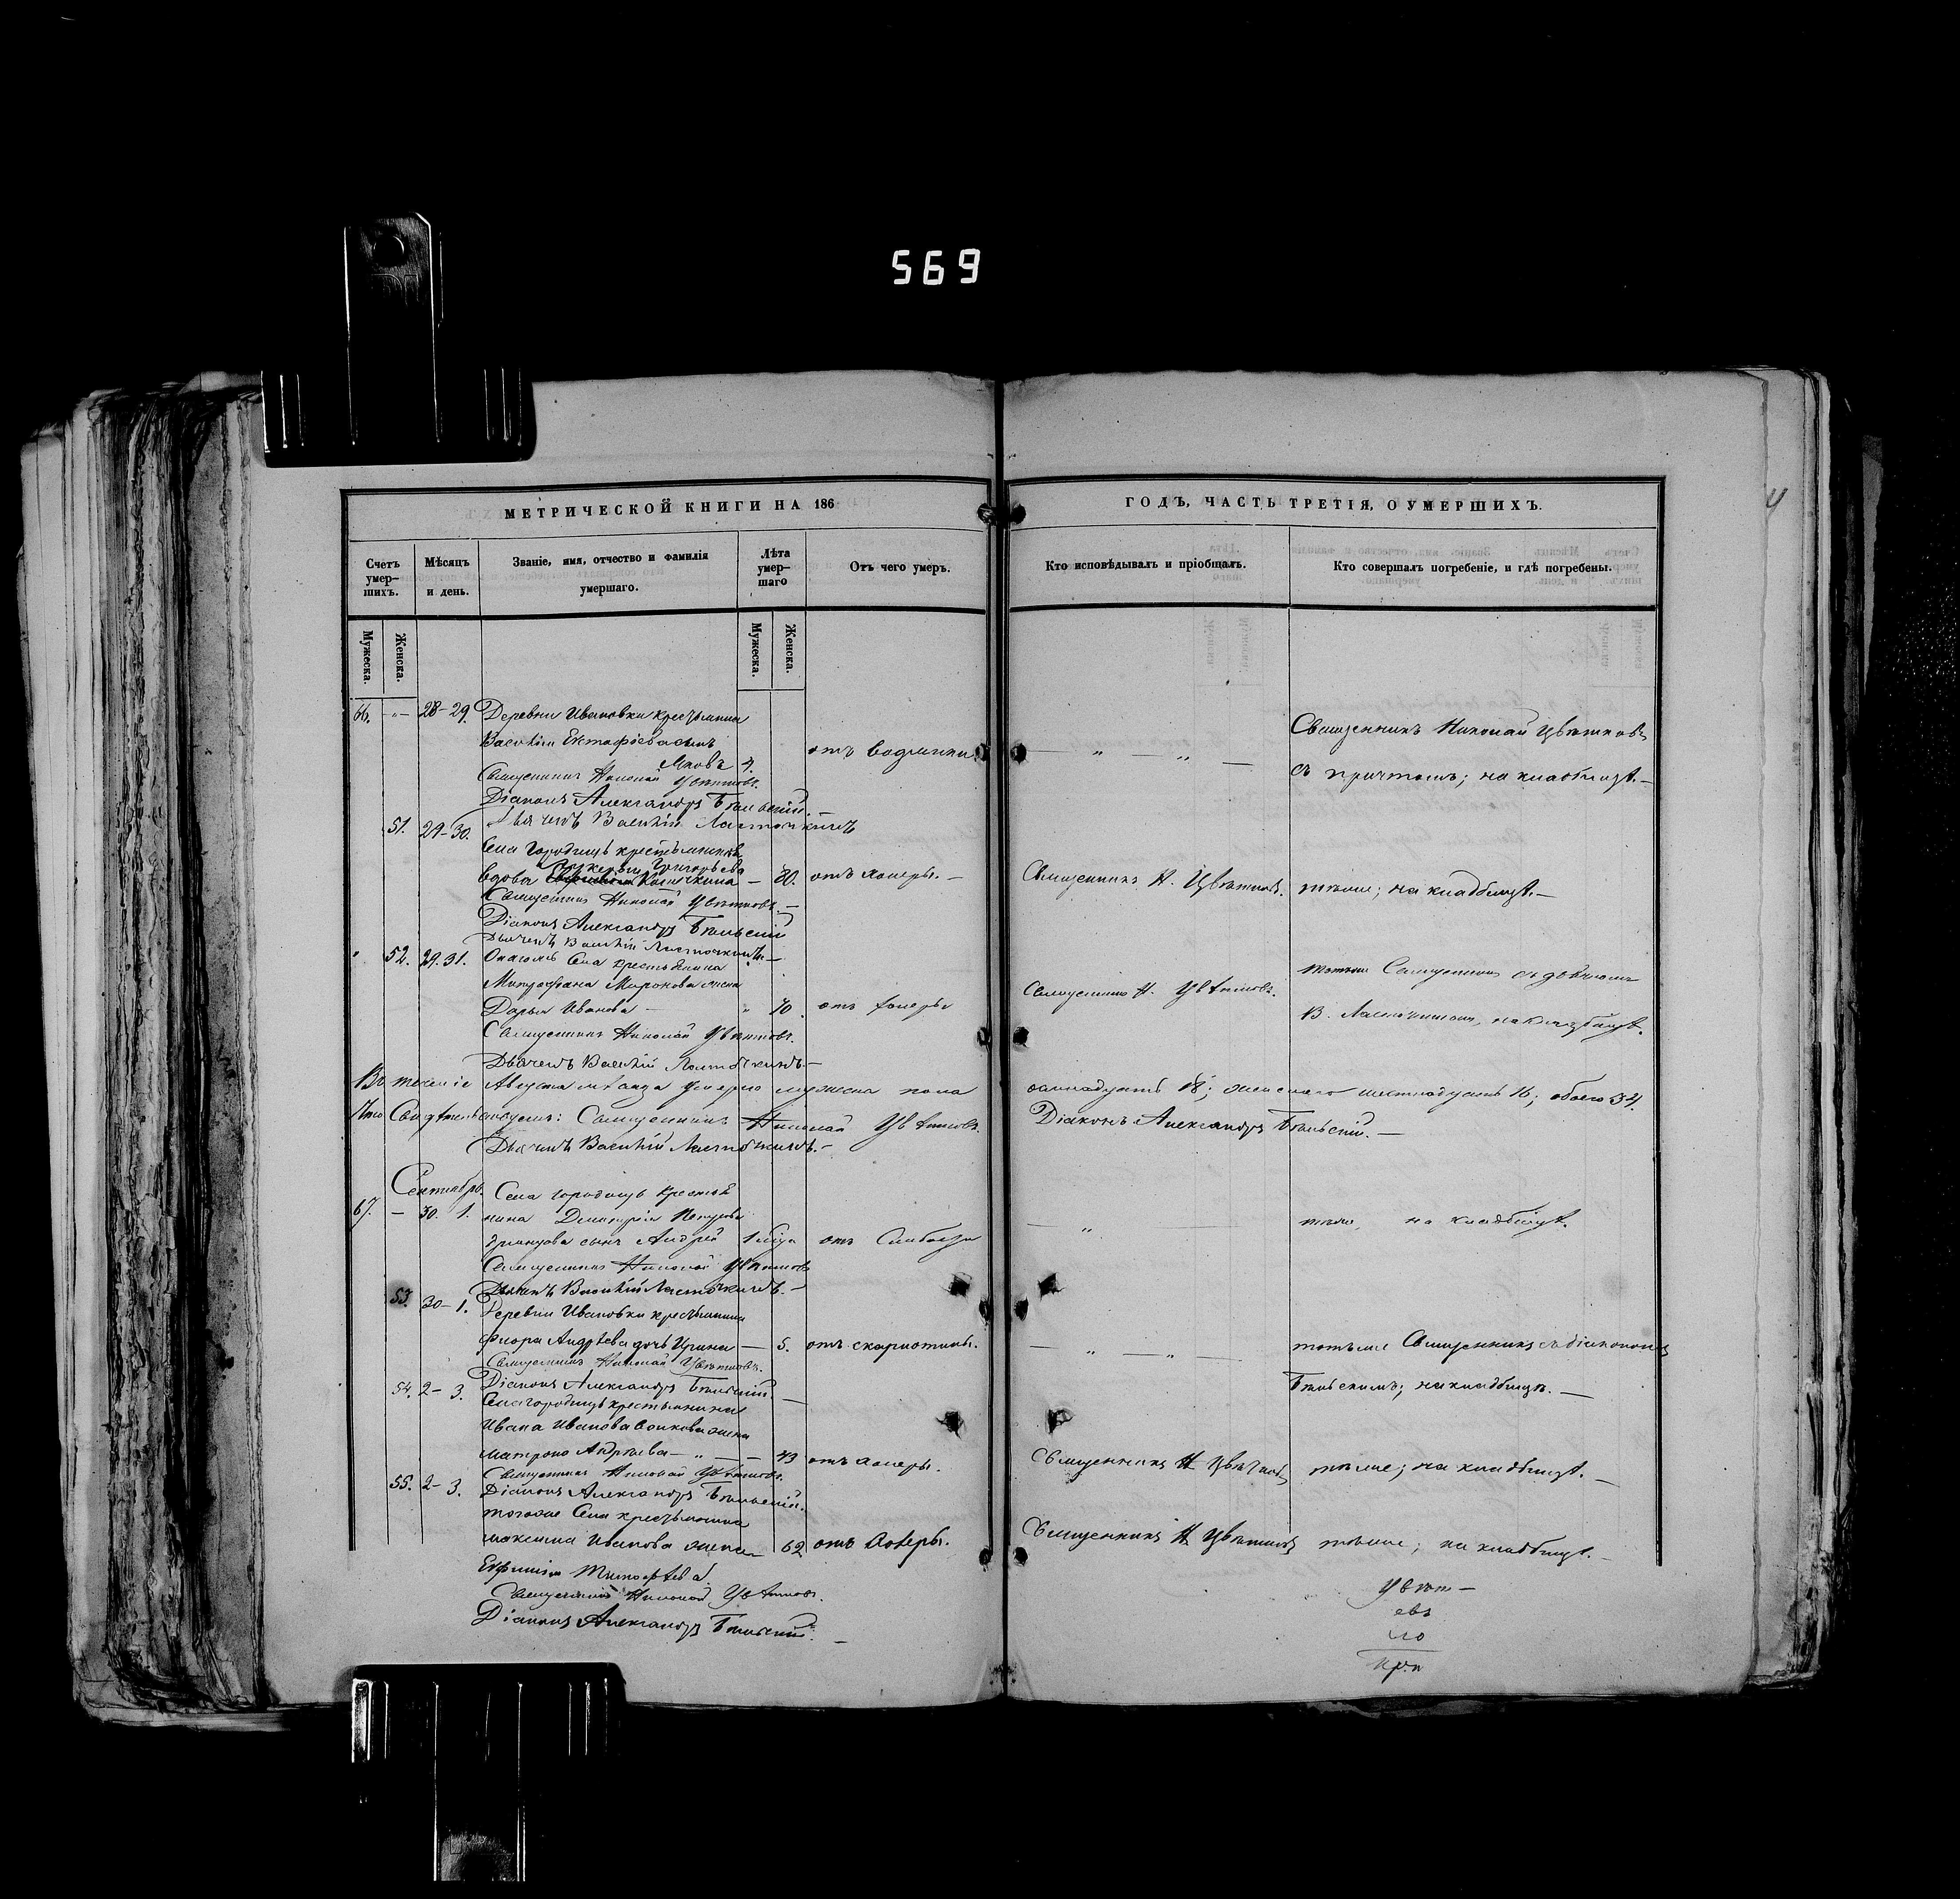 569
МЕТРИЧЕСКОЙ КНИГИ НА 186
ГОДЪ, ЧАСТЬ ТРЕТІЯ, О УМЕРШИХЪ.
Счетъ умер-
шихъ.
Мѣсяцъ
и день.
Званіе, имя, отчество и фамилія
умершаго.
Лѣта
умер-
шаго
Отъ чего умеръ.
Кто исповѣдывалъ и пріобщалъ.
Кто совершалъ погребеніе, и гдѣ погребены.
Мужеска.
Женска.
Мужеска.
Женска.
66. -"- 28-29. Деревни Ивановки крестьянина
Василія Евстафіева сынъ
Яковъ 4. отъ водянки
Священникъ Николай Цвѣтковъ
съ причтомъ; на кладбищѣ.—
Священникъ Николай Цвѣтковъ.
Діаконъ Александръ Бѣльскій.—
Дьячекъ Василій Ласточкинъ
51. 29-30.
Села Городищъ крестьянская
вдова Григорьева — 80. отъ холеры.—
Священникъ Н. Цвѣтковъ. тѣже; на кладбищѣ.—
Священникъ Николай Цвѣтковъ.—
Діаконъ Александръ Бѣльскій
Дьячекъ Василій Ласточкинъ—
52. 29.31. Села крестьянина
Митрофана Миронова жена
Дарья Иванова — " 70. отъ холеры
Священникъ Н. Цвѣтковъ.
тотъже Священникъ съ дьячкомъ
В. Ласточкинымъ, на кладбищѣ.
Священникъ Николай Цвѣтковъ.
Дьячекъ Василій Ласточкинъ.—
Въ теченіе Августа мѣсяца умерло мужеска пола осмнадцать 18; женскаго шестнадцать 16; обоего 34.
Что Священникъ Николай Цвѣтковъ. Діаконъ Александръ Бѣльскій.—
Дьячекъ Василій Ласточкинъ.—
Сентябрь.
67. — 30. 1. Села Городищъ крестья
нина Димитрія
сынъ Андрей 1 отъ слабости
тѣже, на кладбищѣ.
Священникъ Николай Цвѣтковъ
Дьячекъ Василій Ласточкинъ.—
53. 30-1. Деревни Ивановки крестьянина
Флора Андрѣева дочь Ирина — 5. отъ скарлотины.
тотъже Священникъ съ діакономъ
Бѣльскимъ; на кладбищѣ.—
Священникъ Николай Цвѣтковъ.
Діаконъ Александръ Бѣльскій.—
54. 2-3. Села Городищъ крестьянина
Ивана Иванова жена
Матрона Андрѣева — " — 43 отъ холеры.
Священникъ Н Цвѣтковъ тѣже; на кладбищѣ.—
Священникъ Николай Цвѣтковъ.
Діаконъ Александръ Бѣльскій.
55. 2-3. тогоже Села крестьянина
Максима Иванова жена 62 отъ холеры.
Священникъ Н Цвѣтковъ тѣже; на кладбищѣ.—
Евфимія Тимофѣева
Священникъ Николай Цвѣтковъ.
Діаконъ Александръ Бѣльскій.—
Цвѣт—